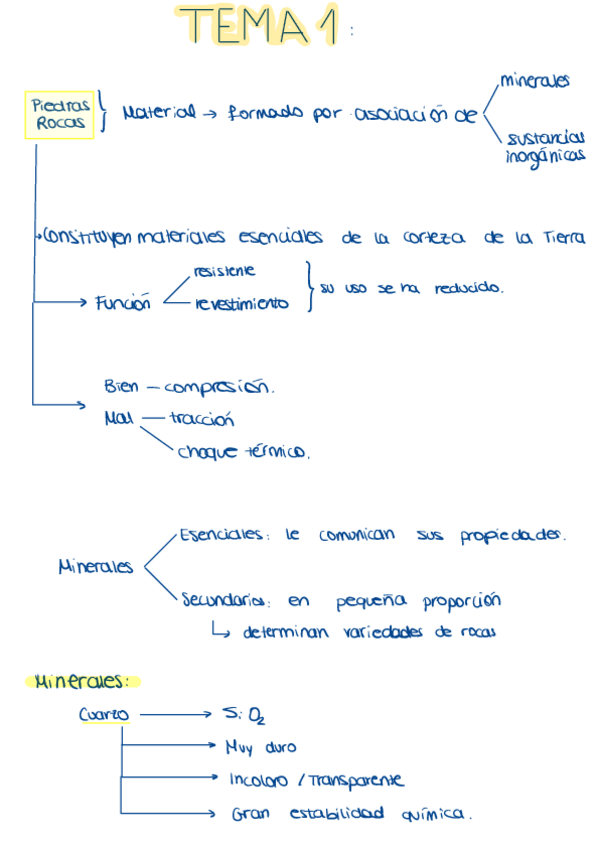 TEMA 1:
Piedras
Rocas
Material → formado por asociación de
minerales
sustancias
inorgánicas
Constituyen materiales esenciales de la corteza de la Tierra
Función
resistente
revestimiento
su uso se ha reducido.
Bien — compresión.
Mal — tracción
choque térmico.
Minerales
Esenciales: le comunican sus propiedades.
Secundarios: en pequeña proporción
↳ determinan variedades de rocas
Minerales:
Cuarzo → SiO₂
→ Muy duro
→ Incoloro / Transparente
→ Gran estabilidad química.